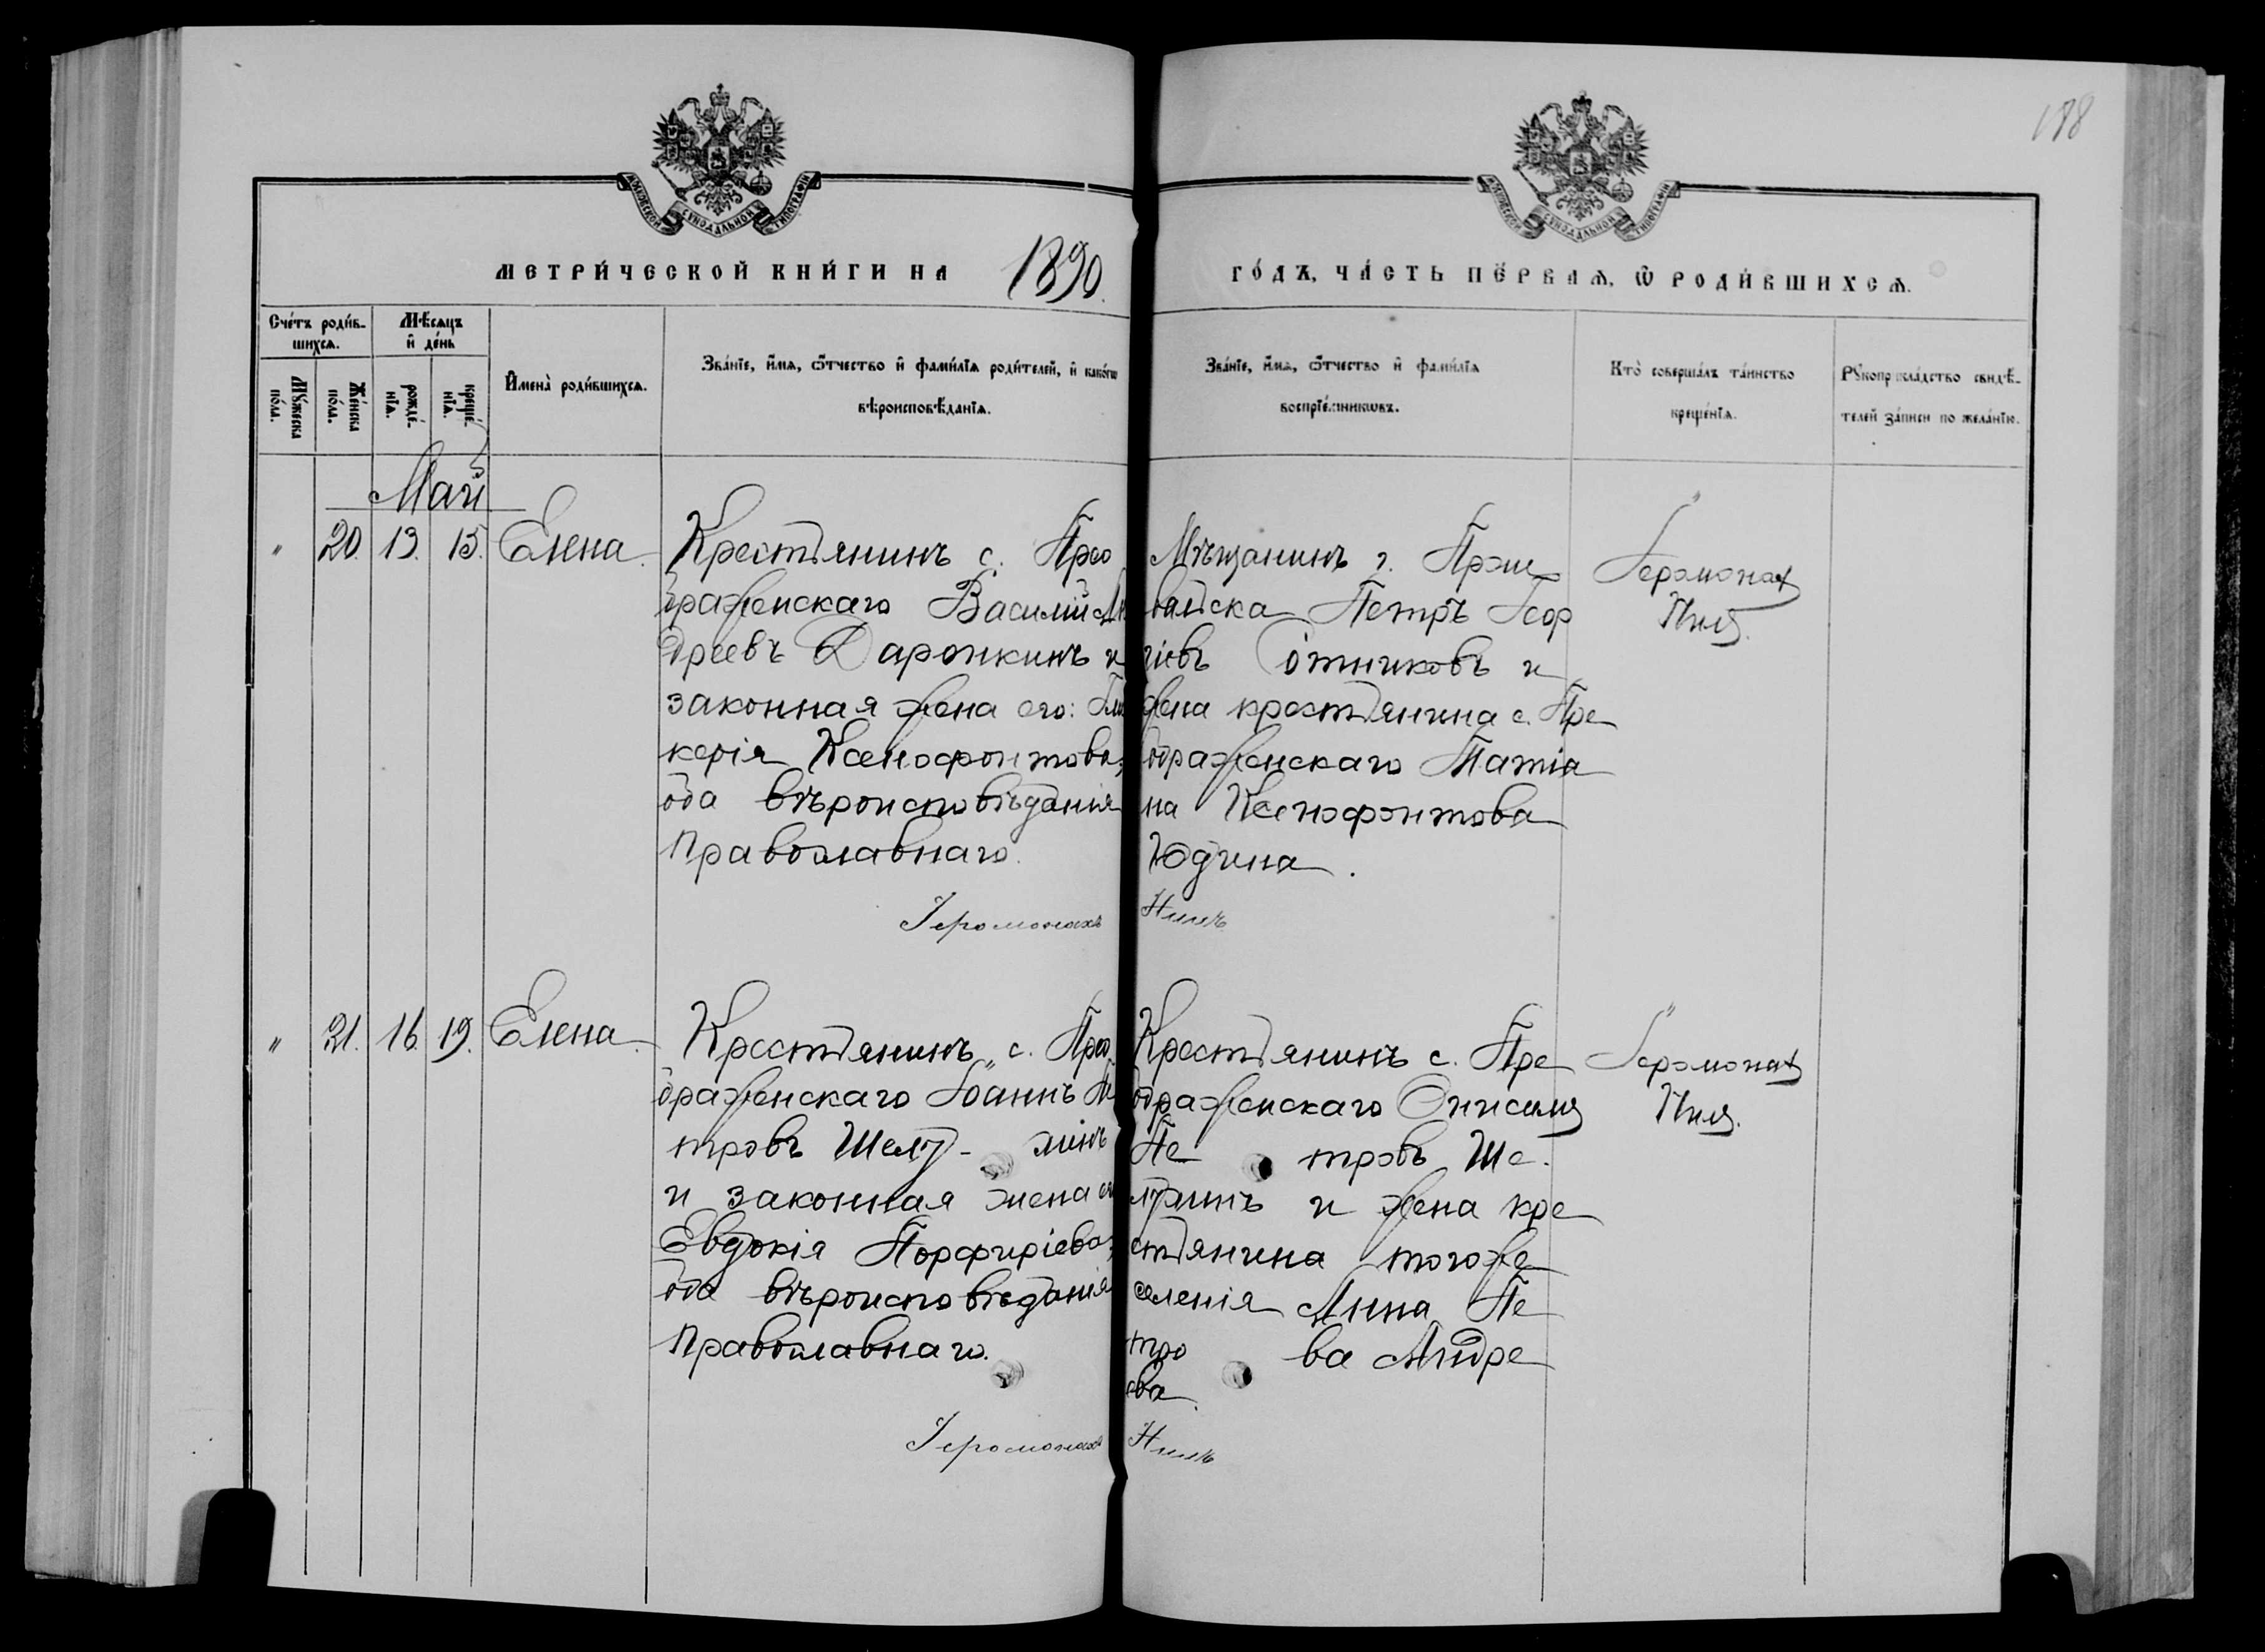 188
МОСКОВСКОЙ СѴНОДАЛЬНОЙ ТИПОГРАФІИ
МОСКОВСКОЙ СѴНОДАЛЬНОЙ ТИПОГРАФІИ
МЕТРИ́ЧЕСКОЙ КНИ́ГИ НА 1890.
ГО́ДЪ, ЧА́СТЬ ПЕ́РВАѦ, Ѡ҆ РОДИ́ВШИХСѦ.
Сче́тъ роди́в-
шихсѧ.
Мѣ́сѧцъ
и҆ де́нь
Мꙋ́жеска
по́ла.
Же́нска
по́ла.
рожде́-
нїѧ.
креще́-
нїѧ.
И҆мена̀ роди́вшихсѧ.
Зва́нїе, и҆́мѧ, ѻ҆́тчество и҆ фами́лїѧ роди́телей, и҆ како́гѡ
вѣроисповѣ́данїѧ.
Зва́нїе, и҆́мѧ, ѻ҆́тчество и҆ фами́лїѧ
воспрїе́мникѡвъ.
Кто̀ соверша́лъ та́инство
креще́нїѧ.
Рꙋкоприкла́дство свидѣ́-
телей за́писи по жела́нїю.
Май
" 20. 13. 15. Елена.
Крестьянинъ с. Прео
браженскаго Василій Ан
дреевъ Даронкинъ и
законная жена его: Гли
керія Ксенофонтова;
оба вѣроисповѣданія
Православнаго.
Мѣщанинъ г. Прже
вальска Петръ Геор
гіевъ Сотниковъ и
жена крестьянина с. Пре
ображенскаго Татіа
на Ксенофонтова
Юдина.
Іеромонах
Нил.
Іеромонахъ Нилъ
" 21. 16. 19. Елена.
Крестьянинъ с. Прео
браженскаго Іоаннъ Пе
тровъ Шелу- минъ
и законная жена его
Евдокія Порфиріева;
оба вѣроисповѣданія
Православнаго.
Крестьянинъ с. Пре
ображенскаго Онисим
Пе тровъ Ше-
и жена кре
стьянина тогоже
селенія Анна Пе
тро ва Андре
ева.
Іеромонах
Нил.
Іеромонахъ Нилъ